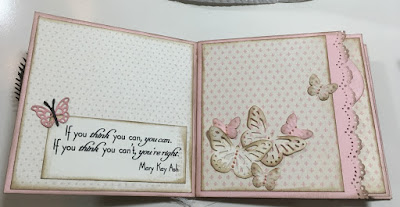 If you think you can, you can.
If you think you can't, you're right.
Mary Kay Ash